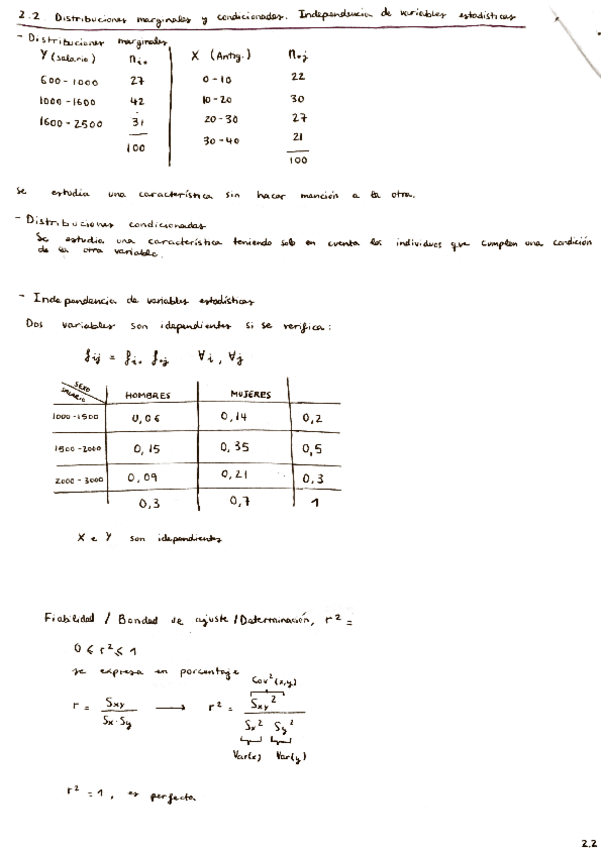 2.2. Distribuciones marginales y condicionadas. Independencia de variables estadísticas
- Distribuciones marginales
Y (salario) ni. X (Antig.) n.j
600-1000 27 0-10 22
1000-1600 42 10-20 30
1600-2500 31 20-30 27
100 30-40 21
100
se estudia una característica sin hacer mención a la otra.
- Distribuciones condicionadas
Se estudia una característica teniendo solo en cuenta los individuos que cumplen una condición
de la otra variable.
- Independencia de variables estadísticas
Dos variables son idependientes si se verifica:
fij = fi. f.j ∀i, ∀j
SEXO
SALARIO HOMBRES MUJERES
1000-1500 0,06 0,14 0,2
1500-2000 0,15 0,35 0,5
2000-3000 0,09 0,21 0,3
0,3 0,7 1
X e Y son idependientes
Fiabilidad / Bondad de ajuste/Determinación, r² =
0 ≤ r² ≤ 1
se expresa en porcentaje
Cov²(x,y)
r = Sxy / Sx·Sy → r² = Sxy² / Sx² Sy²
Var(x) Var(y)
r² = 1, es perfecta
2.2